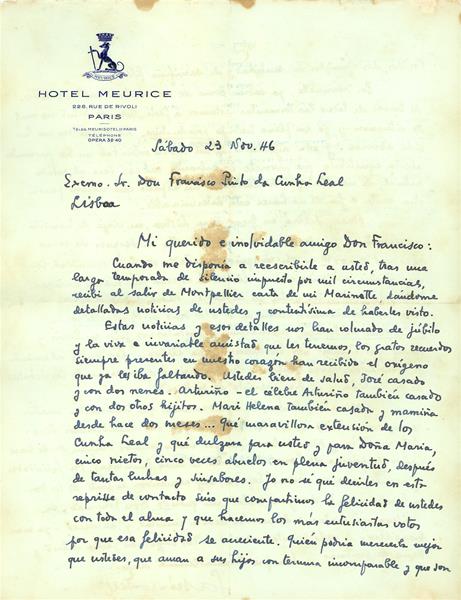 HOTEL MEURICE
228, RUE DE RIVOLI
PARIS
TÉLÉPHONE
OPÉRA 32-40
Sábado 23 Nov. 46
Excmo. Sr. Don Francisco Pinto da Cunha Leal
Lisboa
Mi querido e inolvidable amigo Don Francisco:
Cuando me disponia a reescribirle a usted, tras una
larga temporada de silencio impuesto por mil circunstancias,
recibí al salir de Montpellier carta de mi Marinette, dándome
detalladas noticias de ustedes y contentísima de haberles visto.
Estas noticias y esos detalles nos han colmado de júbilo
y la viva e invariable amistad que les tenemos, los gratos recuerdos
siempre presentes en nuestro corazón han recibido el oxígeno
que ya les iba faltando. Ustedes bien de salud, José casado
y con dos nenes. Arturiño - el célebre Arturiño también casado
y con dos otros hijitos. Mari Helena también casada y mamina
desde hace dos meses... Qué maravillosa extensión de los
Cunha Leal y qué dulzura para usted y para Doña Maria,
cinco nietos, cinco veces abuelos en plena juventud, después
de tantas luchas y sinsabores. Yo no sé qué decirles en esta
reprisse de contacto sino que compartimos la felicidad de ustedes
con toda el alma y que hacemos los más entusiastas votos
por que esa felicidad se acreciente. Quién podria merecerla mejor
que ustedes, que aman a sus hijos con ternura incomparable y que son